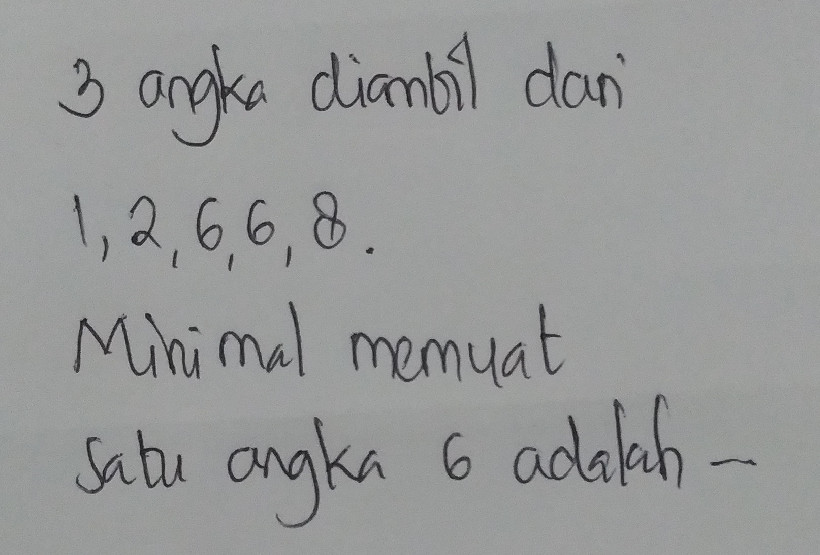 3 angka diambil dari
1, 2, 6, 6, 8.
Minimal memuat
satu angka 6 adalah -